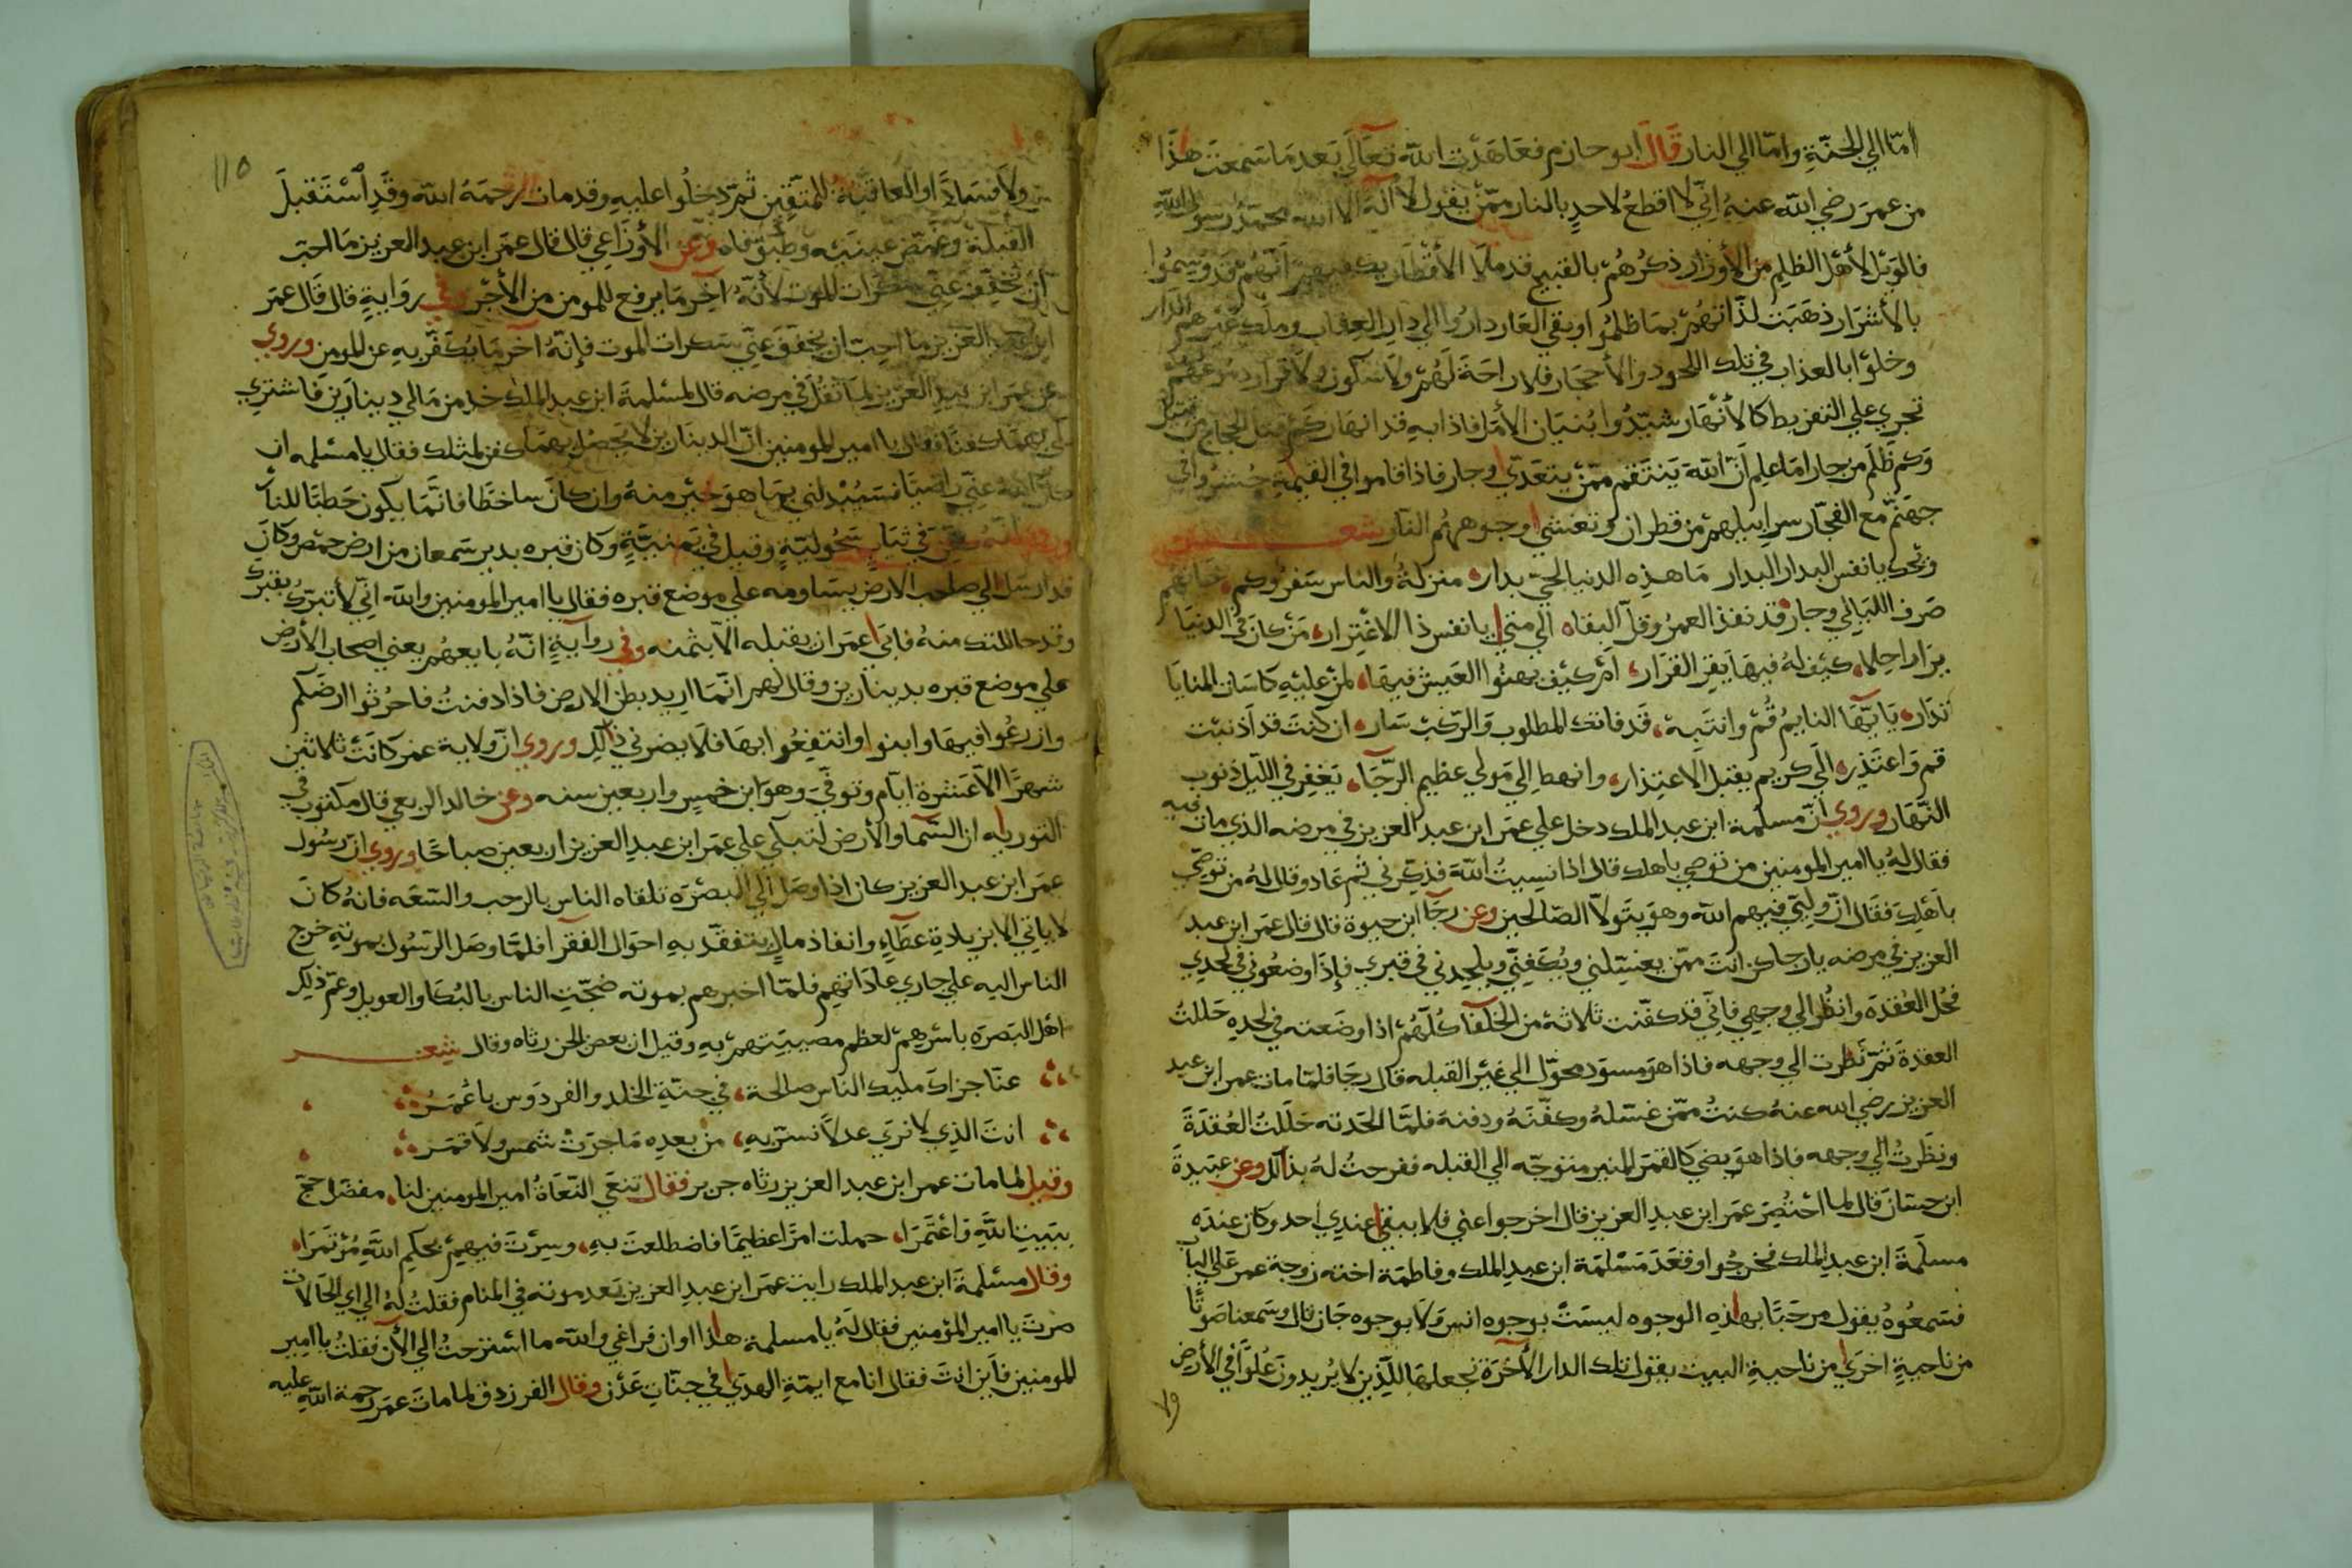 اما الي الجنة واما الي النار قال ابو حازم فعاهدت الله تعالي بعد ما سمعت هذا
من عمر رضي الله عنه اني لا اقطع لاحد بالنار ممن يقول لا اله الا الله محمد رسول الله
فالويل لأهل الظلم من الأوزار ذكرهم بالقبيح قد ملا الأقطار يكفيهم انهم قد وسموا
بالأشرار ذهبت لذاتهم بما ظلموا وبقي العار داروا الي دار العقاب وملك غيرهم الدار
وخلوا بالعذاب في تلك اللحود والأحجار فلا راحة لهم ولا سكون ولا قرار دموعهم
تجري علي التفريط كالأنهار شيدوا بنيان الأمل فاذا به قد انهار كم قتل الحجاج من
وكم ظلم من جار اما علم ان الله ينتقم ممن يتعدي وجار فاذا قاموا في القيمة حشروا في
جهنم مع الفجار سرابيلهم من قطران وتغشي وجوههم النار شعر
ويحك يا نفس البدار البدار ما هذه الدنيا لحي بدار منزلة والناس سفر وكم
صرف الليالي وجار قد نفذ العمر وقل البقاه الي متي يا نفس ذا الاغترار من كان في الدنيا
يرا راحلا كيف له فيها يقر القرار ام كيف يهنوا العيش فيها لمن عليه كاسات المنايا
تدار يا ايها النايم قم وانتبه قد فاتك المطلوب والركب سار ان كنت قد اذنبت
قم واعتذر الي كريم يقبل الاعتذار وانهط الي مولي عظيم الرجا يغفر في الليل ذنوب
النهار وروي ان مسلمة ابن عبد الملك دخل علي عمر ابن عبد العزيز في مرضه الذي مات فيه
فقال له يا امير المومنين من توصي باهلك قال اذا نسيت الله فذكرني ثم عاد وقال له من توصي
باهلك فقال ان وليي فيهم الله وهو يتولا الصالحين وعن رجا ابن حيوة قال قال عمر ابن عبد
العزيز في مرضه يا رجا كن انت ممن يغسلني ويكفني ويلحدني في قبري فإذا وضعوني في لحدي
فحل العقدة وانظر الي وجهي فاني قد كفنت ثلاثة من الخلفا كلهم اذا وضعته في لحده حللت
العقدة ثم نظرت الي وجهه فاذا هو مسود محول الي غير القبله قال رجا فلما مات عمر ابن عبد
العزيز رضي الله عنه كنت ممن غسله وكفنه ودفنه فلما الحدته حللت العقدة
ونظرت الي وجهه فاذا هو يضي كالقمر المنير متوجه الي القبله ففرحت له بذالك وعن عبيدة
ابن حسان قال لما احتضر عمر ابن عبد العزيز قال اخرجوا عني فلا يبقي عندي احد وكان عنده
مسلمة ابن عبد الملك فخرجوا وقعد مسلمة ابن عبد الملك وفاطمة اخته زوجة عمر علي الباب
فسمعوه يقول مرحبا بهذه الوجوه ليست بوجوه انس ولا بوجوه جان قال وسمعنا صوتا
من ناحية اخري من ناحية البيت يقول تلك الدار الأخرة نجعلها للذين لا يريدون علوا في الأرض
٧٩
١١٥
ولا فسادا والعاقبة للمتقين ثم دخلوا عليه وقد مات رحمه الله وقد استقبل
القبلة وغمض عينيه وطبق فاه وعن الأوزاعي قال قال عمر ابن عبد العزيز ما احب
ان تخفف عني سكرات الموت لأنه آخر ما يرفع للمومن من الأجر وفي رواية قال قال عمر
ابن عبد العزيز ما احب ان يخفف عني سكرات الموت فإنه آخر ما يكفر به عن المومن وروي
عن عمر ابن عبد العزيز لما ثقل في مرضه قال لمسلمة ابن عبد الملك خذ من مالي دينارين فاشتري
لي بهما كفنا فقال يا امير المومنين ان الدينارين لا يحصل بهما كفن لمثلك فقال يا مسلمه ان
كان الله عني راضيا فسيبدلني بما هو خير منه وان كان ساخطا فانما يكون حطبا للنار
وروي انه كفن في ثياب سحولية وقيل في يمنية وكان قبره بدير سمعان من ارض حمص وكان
قد ارسل الي صاحب الارض يساومه علي موضع قبره فقال يا امير المومنين والله اني لأتبرك بقبرك
وقد حاللتك منه فابي عمر ان يقبله الا بثمنه وفي رواية انه بايعهم يعني اصحاب الأرض
علي موضع قبره بدينارين وقال لهم انما اريد بطن الارض فاذا دفنت فاحرثوا ارضكم
وازرعوا فيها وابنوا وانتفعوا بها فلا يضرني ذالك وروي ان ولاية عمر كانت ثلاثين
شهرا الا عشرة ايام وتوفي وهو ابن خمس واربعين سنه وعن خالد الربعي قال مكتوب في
التوريه ان السما والأرض لتبكي علي عمر ابن عبد العزيز اربعين صباحا وروي ان رسول
عمر ابن عبد العزيز كان اذا وصل الي البصره تلقاه الناس بالرحب والسعه فانه كان
لا ياتي الا بزيادة عطاء وانفاذ مال يتفقد به احوال الفقرا فلما وصل الرسول بموته خرج
الناس اليه علي جاري عاداتهم فلما اخبرهم بموته ضجت الناس بالبكا والعويل وعم ذلك
اهل البصره باسرهم لعظم مصيبتهم به وقيل ان بعض الجن رثاه وقال شعر
عنا جزاك مليك الناس صالحة في جنة الخلد والفردوس يا عمر
انت الذي لا نري عدلا نسر به من بعده ما جرت شمس ولا قمر
وقيل لما مات عمر ابن عبد العزيز رثاه جرير فقال تنعي النعاة امير المومنين لنا مفضل حج
ببيت الله واعتمرا حملت امرا عظيما فاضطلعت به وسرت فيهم بحكم الله مؤتمرا
وقال مسلمة ابن عبد الملك رايت عمر ابن عبد العزيز بعد موته في المنام فقلت له الي اي الحالات
صرت يا امير المؤمنين فقال له يا مسلمة هذا اوان فراغي والله ما استرحت الي الأن فقلت يا امير
المومنين فأين انت فقال انا مع ايمة الهدي في جنات عدن وقال الفرزدق لما مات عمر رحمة الله عليه